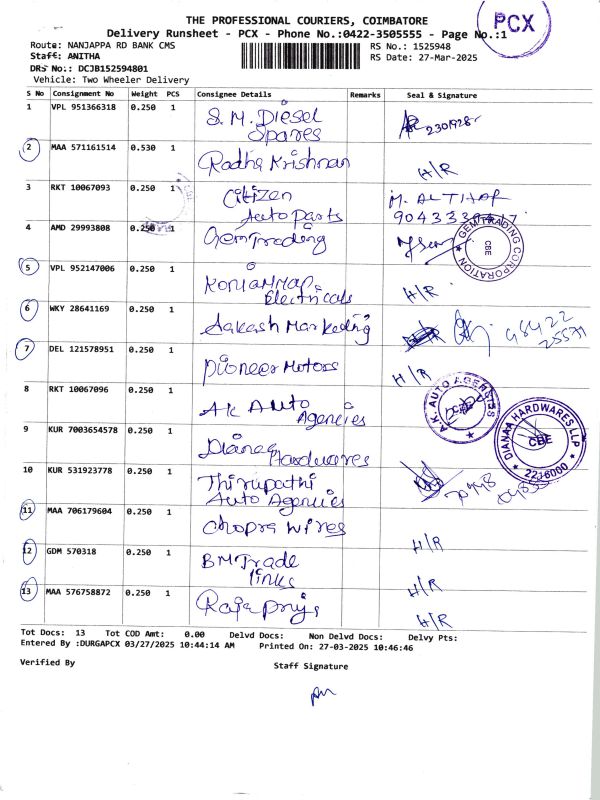 THE PROFESSIONAL COURIERS, COIMBATORE
PCX
Delivery Runsheet - PCX - Phone No.:0422-3505555 - Page No.:1
Route: NANJAPPA RD BANK CMS
RS No.: 1525948
Staff: ANITHA
RS Date: 27-Mar-2025
DRS No.: DCJB152594801
Vehicle: Two Wheeler Delivery
S No Consignment No Weight PCS Consignee Details Remarks Seal & Signature
1 VPL 951366318 0.250 1 S.M. Diesel
Spares
2 MAA 571161514 0.530 1 Radha Krishnan H/R
3 RKT 10067093 0.250 1 Citizen M. ALTHAF
Auto Parts
4 AMD 29993808 0.250 1 Gem Trading
GEM TRADING CORPORATION
CBE
5 VPL 952147006 0.250 1
Electricals H/R
6 WKY 28641169 0.250 1 Aakash Marketing 98422
25571
7 DEL 121578951 0.250 1 Pioneer Motors H/R
8 RKT 10067096 0.250 1 A.K Auto
Agencies
A.K. AUTO AGENCIES
9 KUR 7003654578 0.250 1 Dianaa
Hardwares
DIANAA HARDWARES LLP
CBE
2216000
10 KUR 531923778 0.250 1 Thirupathi
Auto Agencies
11 MAA 706179604 0.250 1 Chopra Wires H/R
12 GDM 570318 0.250 1 BM Trade
links H/R
13 MAA 576758872 0.250 1 H/R
Tot Docs: 13 Tot COD Amt: 0.00 Delvd Docs: Non Delvd Docs: Delvy Pts:
Entered By :DURGAPCX 03/27/2025 10:44:14 AM Printed On: 27-03-2025 10:46:46
Verified By
Staff Signature